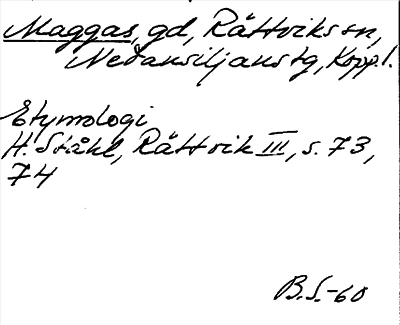 Maggas, gd, Rättviks sn,
Nedansiljans tg, Kopp. l.
Etymologi
H. Ståhl, Rättvik III, s. 73,
74
B.S.-60